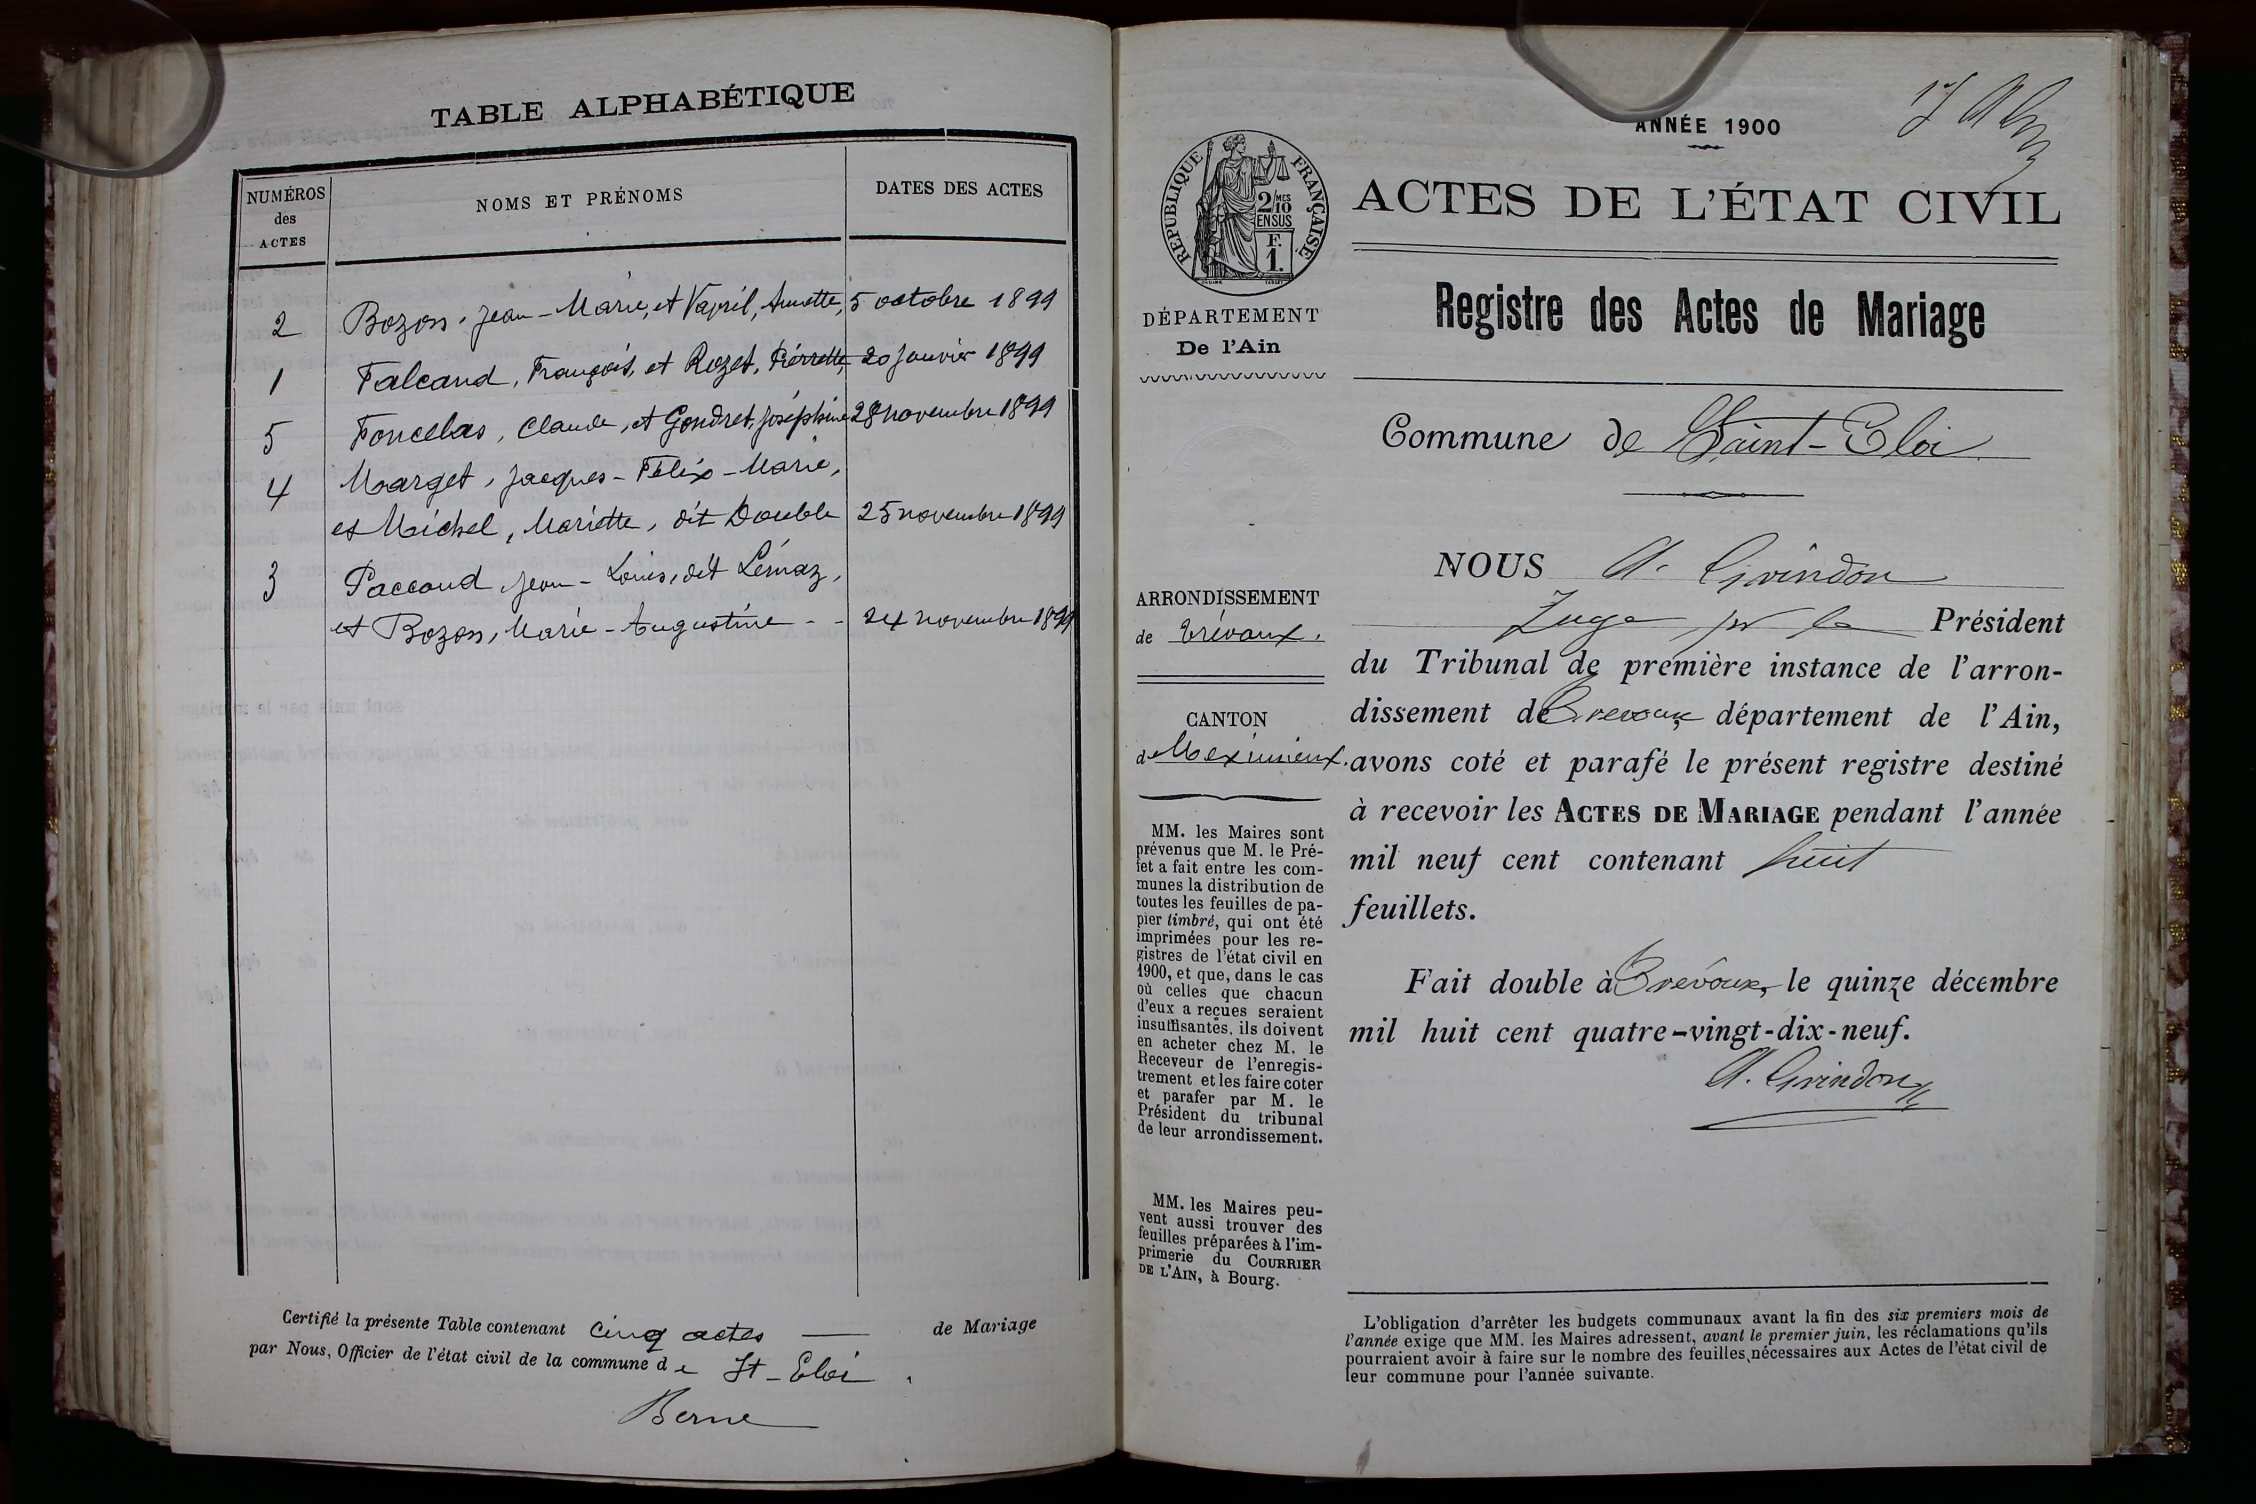 TABLE ALPHABÉTIQUE
NUMÉROS
des
ACTES
NOMS ET PRÉNOMS
DATES DES ACTES
2 Bozon, Jean-Marie, et Vapril, Annette, 5 octobre 1899
1 Falcand, François, et Rozet, Pierrette, 20 janvier 1899
5 Foncelas, Claude, et Gondret, Joséphine 28 novembre 1899
4 Marget, Jacques-Félix-Marie,
et Michel, Mariette, dit Double 25 novembre 1899
3 Paccoud, Jean-Louis, dit Lémaz,
et Bozon, Marie-Augustine - - 24 novembre 1899
Certifié la présente Table contenant cinq actes de Mariage
par Nous, Officier de l'état civil de la commune de St-Eloi.
Berne
ANNÉE 1900
RÉPUBLIQUE FRANÇAISE
2/10 MES
EN SUS
F.
1.
DÉPARTEMENT
De l'Ain
ARRONDISSEMENT
de Trévoux.
CANTON
de Meximieux.
MM. les Maires sont
prévenus que M. le Pré-
fet a fait entre les com-
munes la distribution de
toutes les feuilles de pa-
pier timbré, qui ont été
imprimées pour les re-
gistres de l'état civil en
1900, et que, dans le cas
où celles que chacun
d'eux a reçues seraient
insuffisantes, ils doivent
en acheter chez M. le
Receveur de l'enregis-
trement et les faire coter
et parafer par M. le
Président du tribunal
de leur arrondissement.
MM. les Maires peu-
vent aussi trouver des
feuilles préparées à l'im-
primerie du COURRIER
DE L'AIN, à Bourg.
ACTES DE L'ÉTAT CIVIL
Registre des Actes de Mariage
Commune de Saint-Eloi
NOUS A. Grindon
Juge pr le Président
du Tribunal de première instance de l'arron-
dissement de Trevoux, département de l'Ain,
avons coté et parafé le présent registre destiné
à recevoir les ACTES DE MARIAGE pendant l'année
mil neuf cent contenant huit
feuillets.
Fait double à Trévoux, le quinze décembre
mil huit cent quatre-vingt-dix-neuf.
A. Grindon
L'obligation d'arrêter les budgets communaux avant la fin des six premiers mois de
l'année exige que MM. les Maires adressent, avant le premier juin, les réclamations qu'ils
pourraient avoir à faire sur le nombre des feuilles nécessaires aux Actes de l'état civil de
leur commune pour l'année suivante.